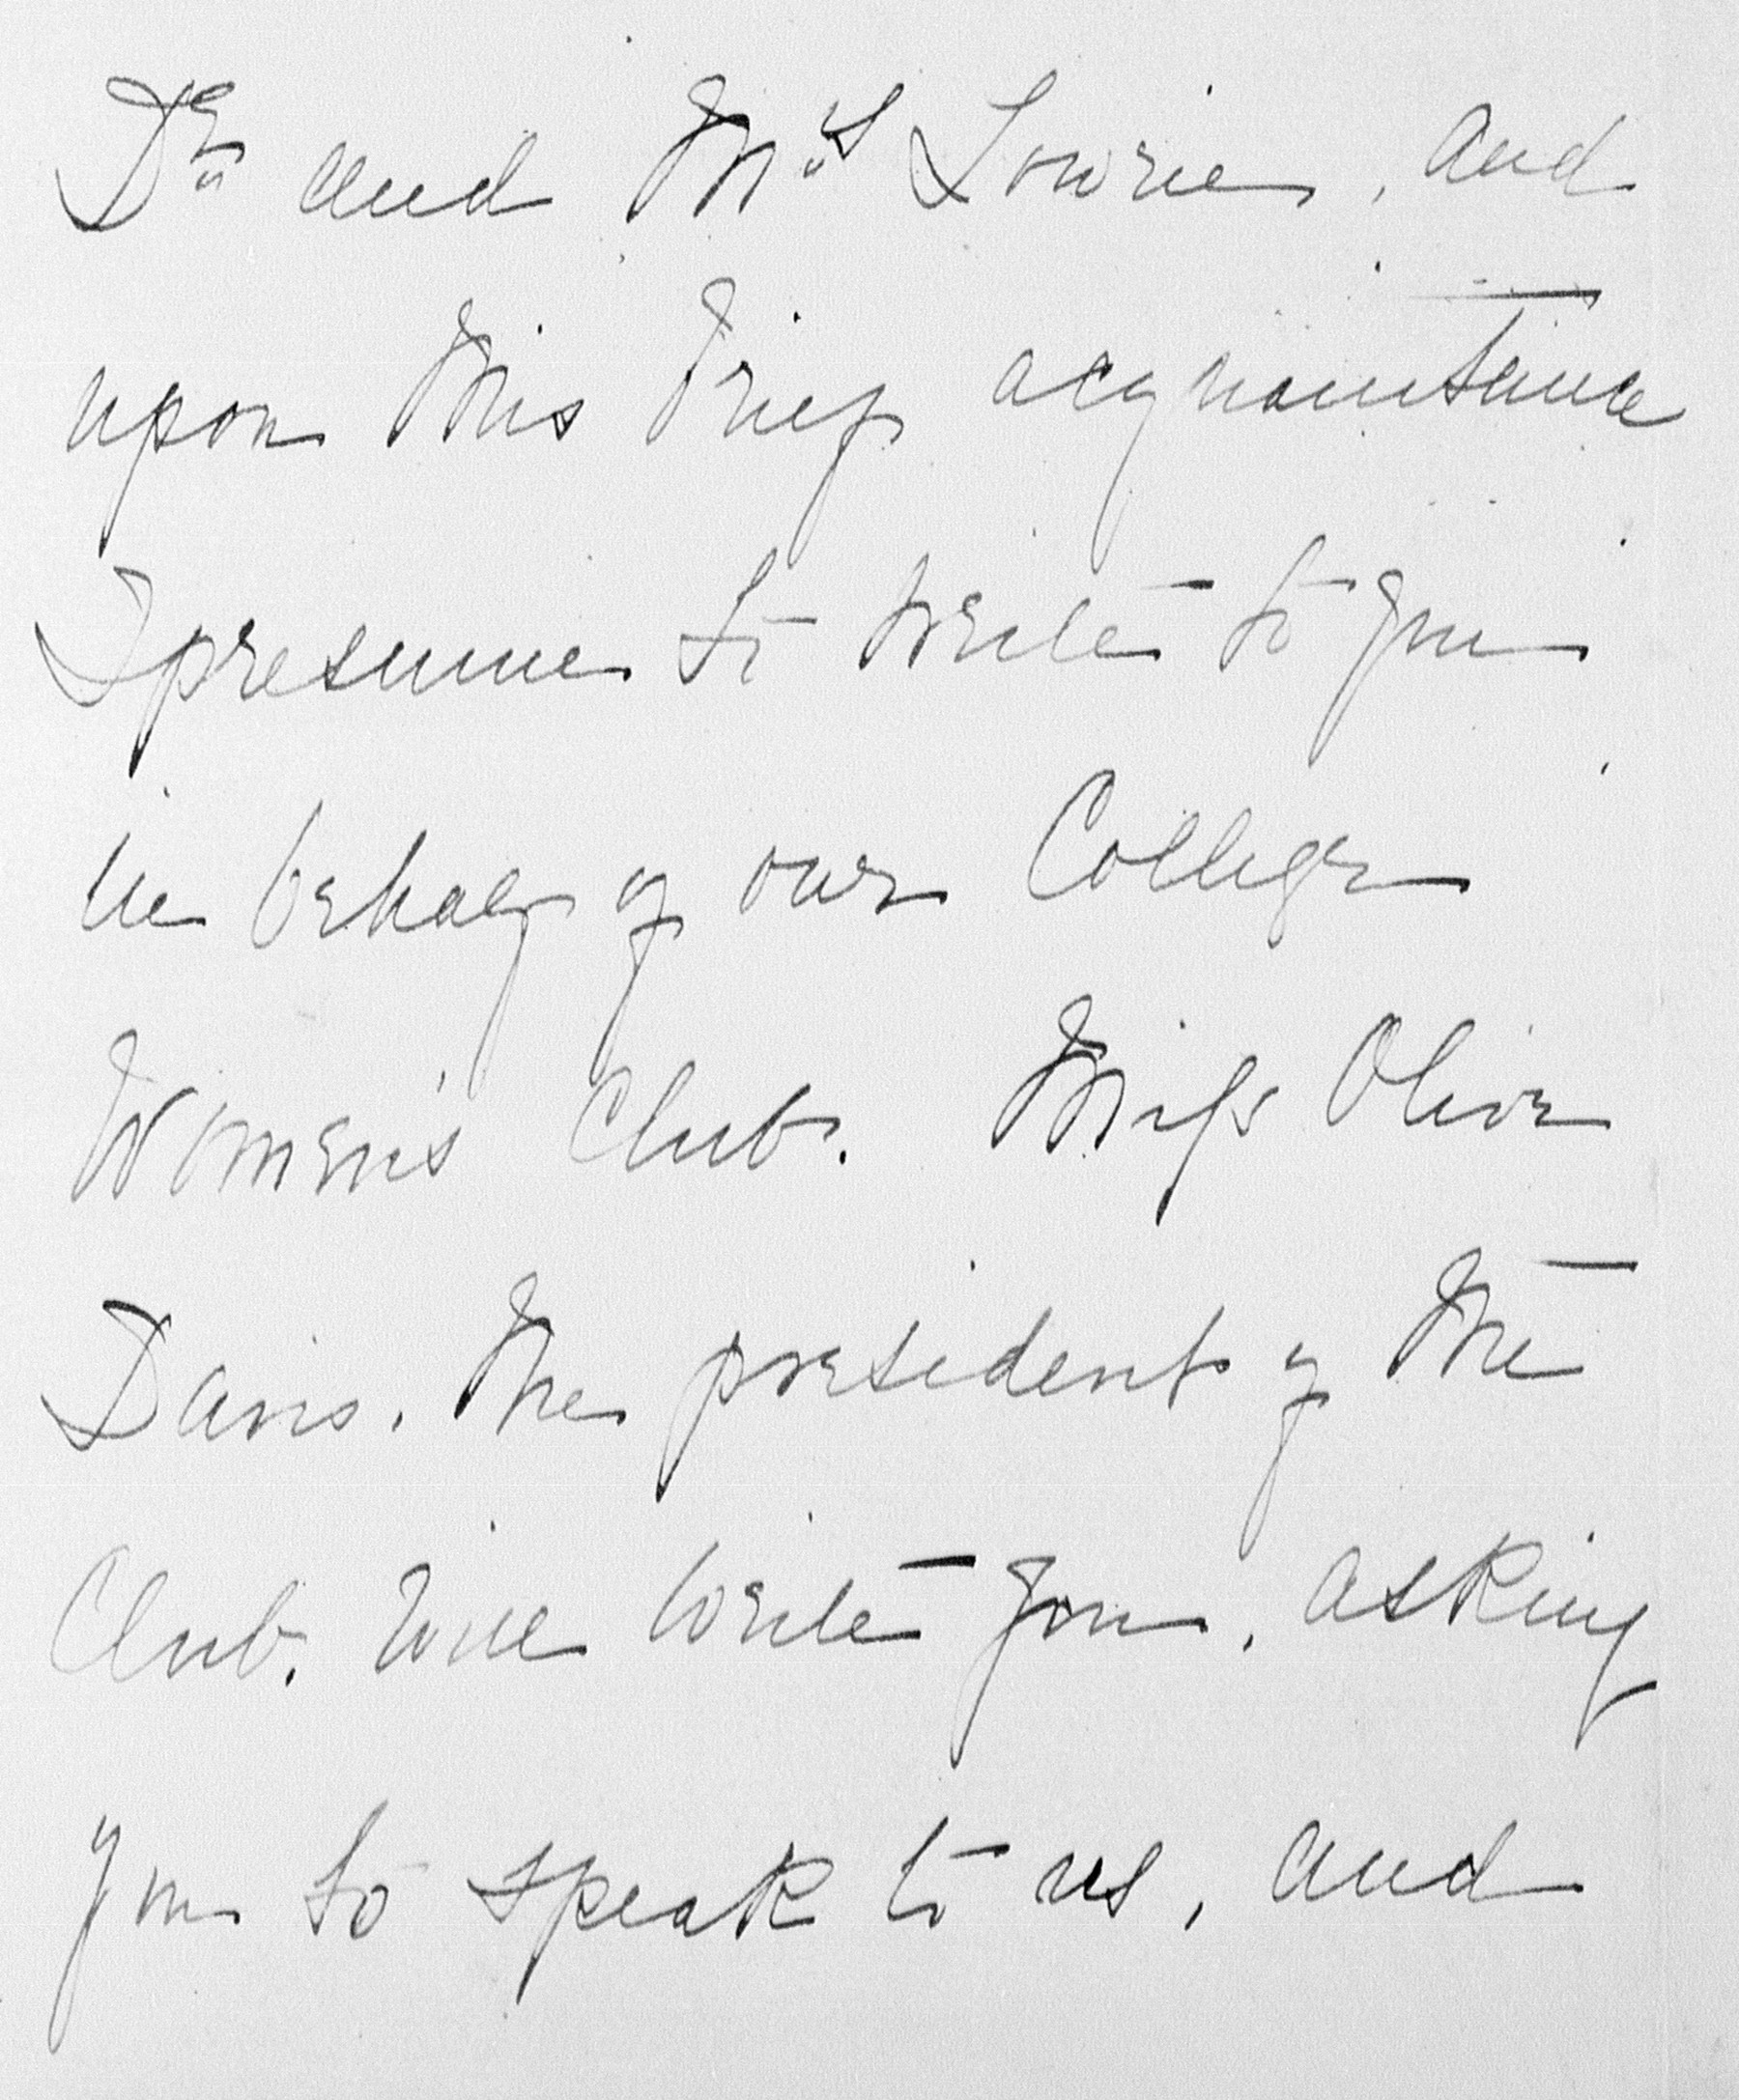 Dr. and Mrs. Lowrie, and
upon this brief acquaintance
I presume to write to you
in behalf of our College
Women's Club. Miss Olive
Davis, the president of the
Club, will write you, asking
you to speak to us, and